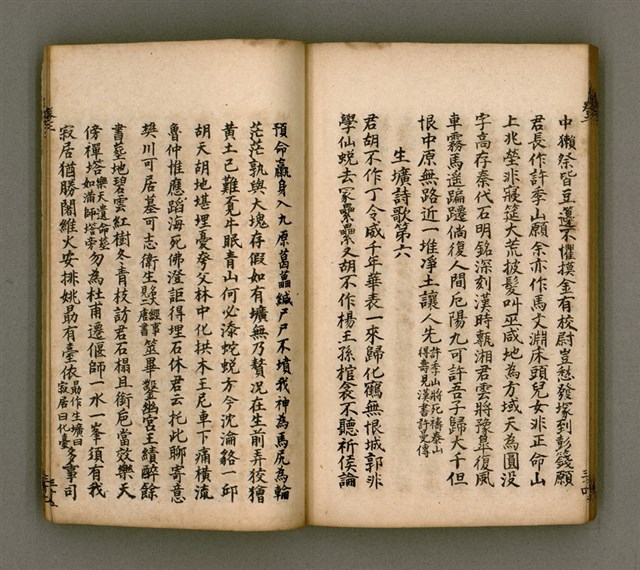 中獺祭皆豆邊不懼摸金有校尉豈愁發塚到彭籛願
君長作許李山願余亦作馬文淵床頭兒女非正命山
上兆塋非寢筵大荒披髮叫巫咸地為方域天為圓沒
字高存秦代石明銘深刻漢時甎湘君雲將豫阜復風
車霧馬遥蹁躚倘復人間厄陽九可許吾子歸大千但
恨中原無路近一堆凈土讓人先許季山將死禱泰山得壽見漢書許曼傳
生壙詩歌第六
君胡不作丁令威千年華表一來歸化鶴無恨城郭非
學仙蛻去冢纍纍又胡不作楊王孫棺衾不聽祈侯論
預命羸身入九原葛藟鍼尸尸不墳我神為馬尻為輪
茫茫孰與大塊存假如有壙無乃贅況在生前弄狡獪
黃土已難覓牛眠青山何必添蛇蛻方今沉淪貉一邱
胡天胡地堪埋憂夸父林中化拱木王尼車下痛橫流
魯仲推應蹈海死佛澄詎得埋石休君云托此聊寄意
樊川可居墓可志衛生賒死經事見唐書筮畢鑿幽宮王績醉餘
書墓地碧雲紅樹冬青枝訪君石榻且銜卮當效樂天
傍禪塔樂天遺命葬如滿師塔旁勿為杜甫遷偃師一水一峯須有我
寂居猶勝闍維火安排姚勗有臺依勗作生壙曰寂居曰化臺多事司